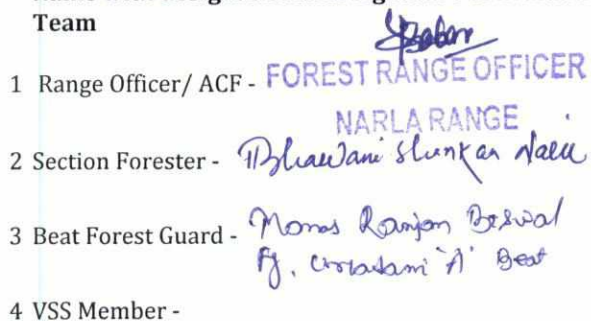 Team
1 Range Officer/ ACF - FOREST RANGE OFFICER
NARLA RANGE
2 Section Forester - Bhawani Shankar
3 Beat Forest Guard - Manas Ranjan
'A' Beat
4 VSS Member -